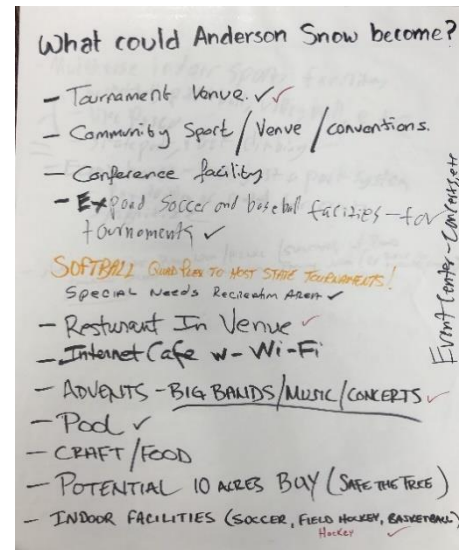 What could Anderson Snow become?
- Tournament Venue. ✓ ✓
- Community Sport / Venue / conventions.
- Conference facility
- Expand Soccer and baseball facilities - for
tournaments ✓
SOFTBALL QUAD PLEX TO HOST STATE TOURNAMENTS!
Special Needs Recreation Area ✓
- Resturant In Venue ✓
- Internet Cafe w- Wi-Fi
- ADVENTS - BIG BANDS/MUSIC/CONCERTS ✓
- Pool ✓
- CRAFT/FOOD
- POTENTIAL 10 ACRES BUY (SAFE THE TREE)
- INDOOR FACILITIES (SOCCER, FIELD HOCKEY, BASKETBALL)
Hockey ✓
Event Center - Concerts, etc